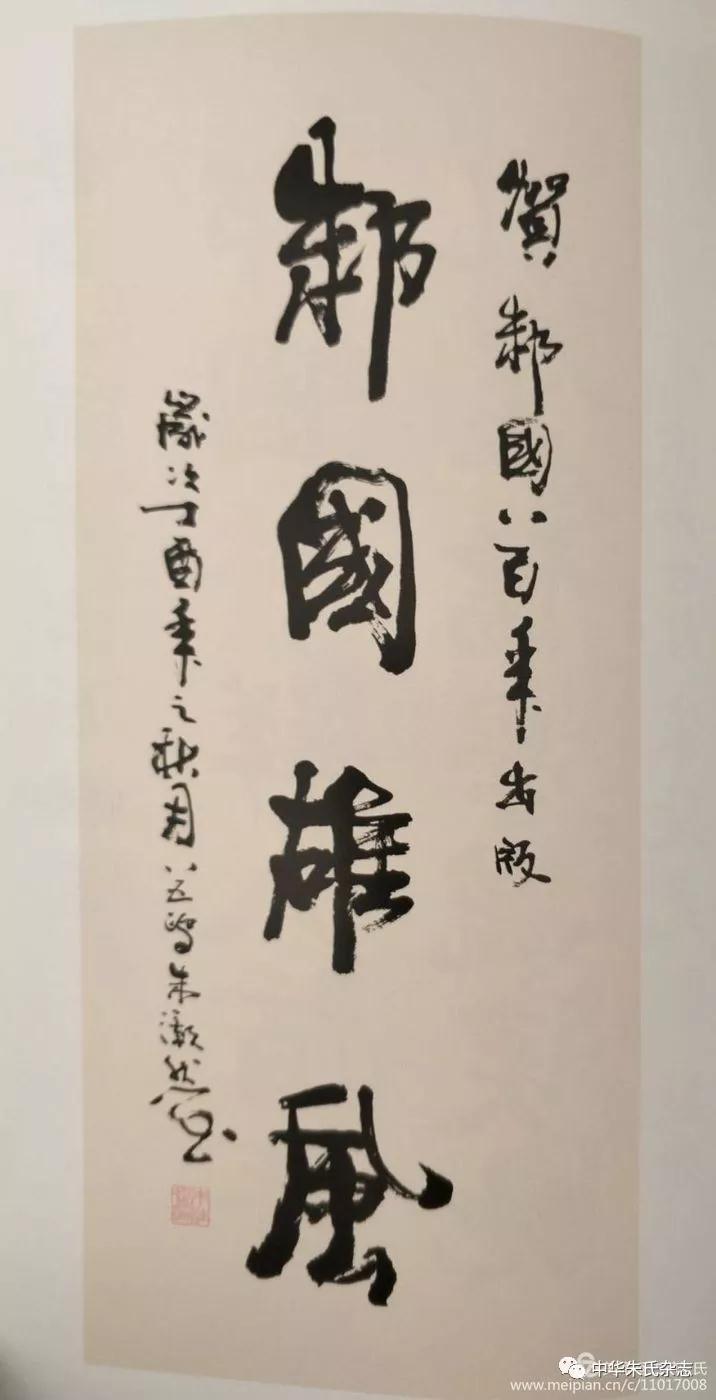 賀邾國八百年出版
邾國雄風
歲次丁酉年之秋月八五朱然書
中华朱氏杂志
www.meipian.cn/c/11017008